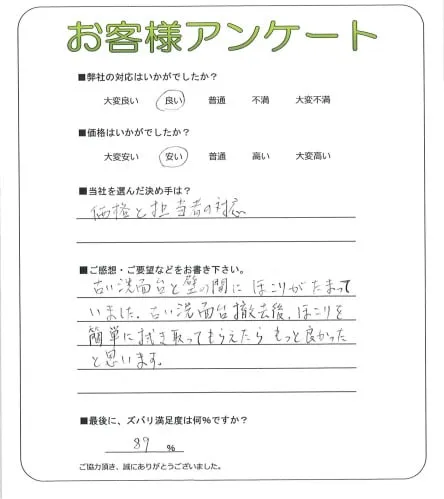 お客様アンケート
■弊社の対応はいかがでしたか?
大変良い 良い 普通 不満 大変不満
■価格はいかがでしたか?
大変安い 安い 普通 高い 大変高い
■当社を選んだ決め手は?
価格と担当者の対応
■ご感想・ご要望などをお書き下さい。
古い洗面台と壁の間に ほこりがたまって
いました。古い洗面台撤去後、ほこりを
簡単に拭き取ってもらえたら もっと良かった
と思います。
■最後に、ズバリ満足度は何%ですか?
89 %
ご協力頂き、誠にありがとうございました。